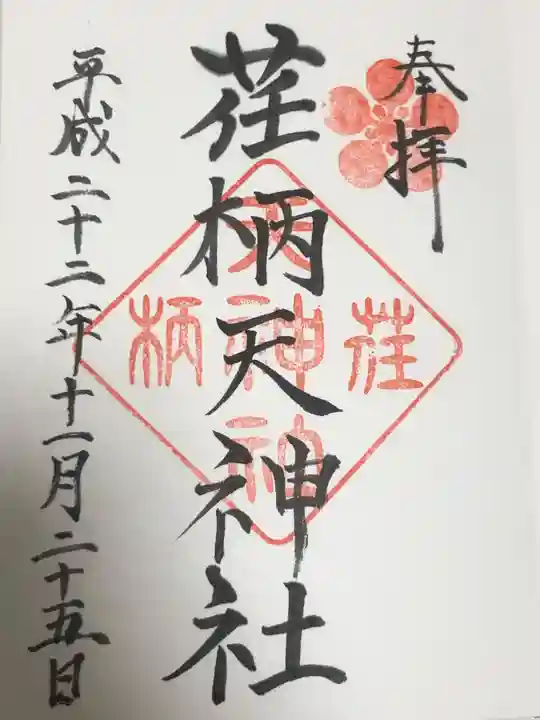 奉拝
荏柄天神社
平成二十二年十一月二十五日
荏
柄